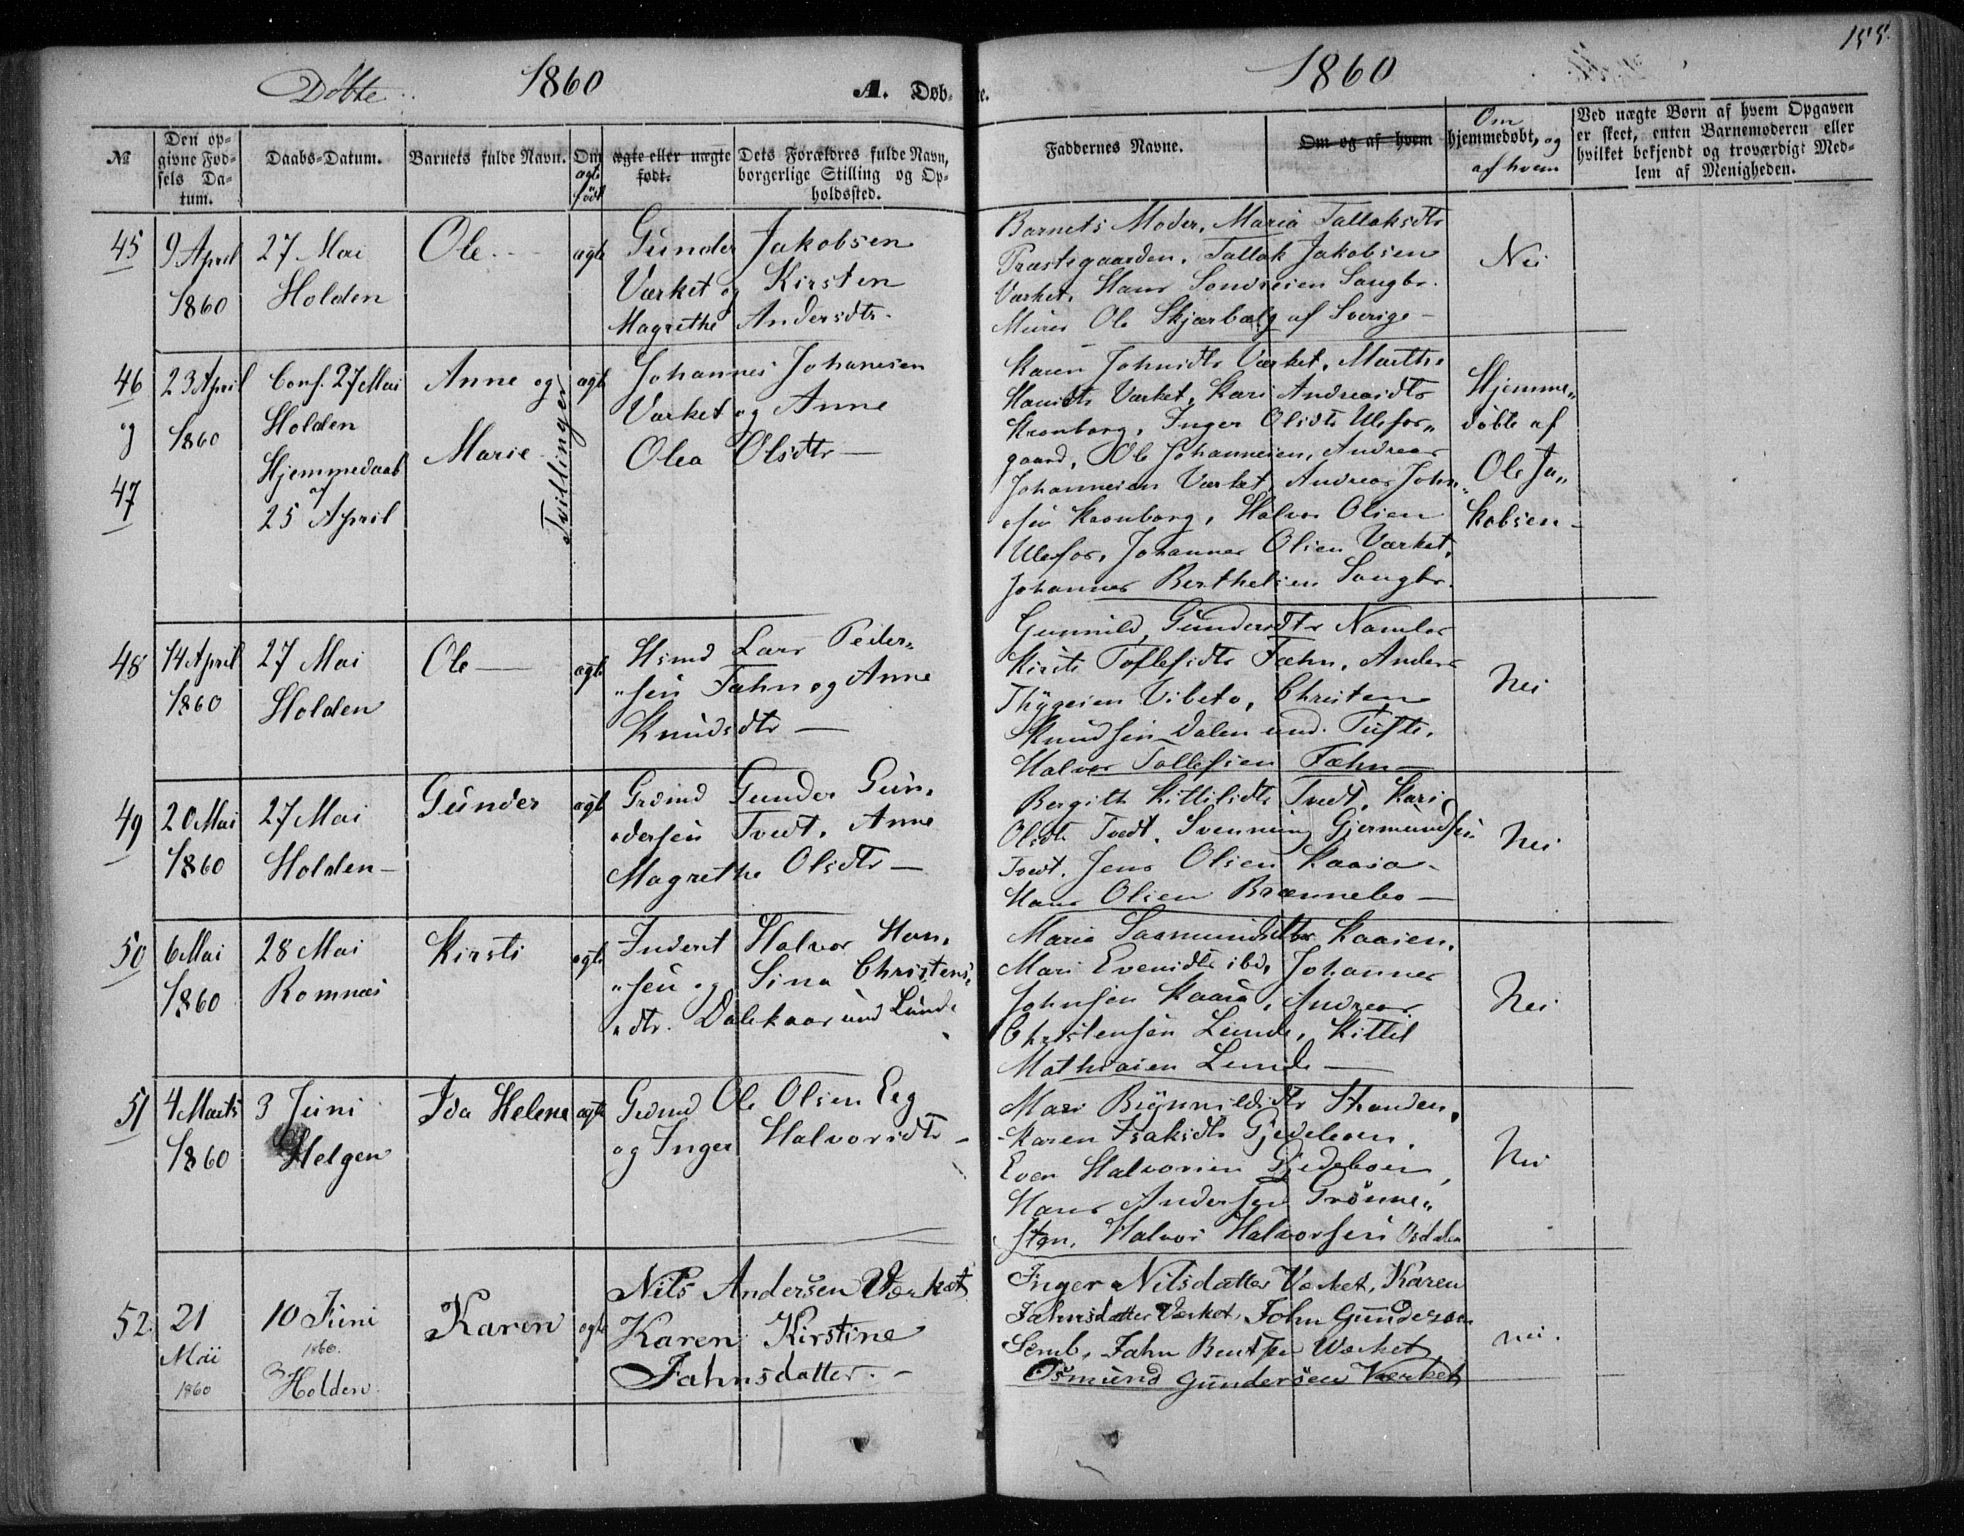 155.
Døbte. 1860 A. Døb- e. 1860
№
Den op-
givne Fød-
sels Da-
tum.
Daabs-Datum.
Barnets fulde Navn.
Om
ægte
født
ægte eller uægte
født.
Dets Forældres fulde Navn,
borgerlige Stilling og Op-
holdssted.
Faddernes Navne.
Om og af hvem
Om
hjemmedøbt, og
af hvem
Ved uægte Børn af hvem Opgaven
er skeet, enten Barnemoderen eller
hvilket bekjendt og troværdigt Med-
lem af Menigheden.
45
9 April
1860
27 Mai
Holden
Ole
ægte
Gunder Jakobsen
Værket og Kirsten
Magrethe Andersdtr.
Barnets Moder, Maria Tallaksdtr
Præstegaarden, Tallak Jakobsen
Værket, Hans Sondresen Saugbr.
Murer Ole Skjærbælg af Sverige
Nei
46
og
47
23 April
1860
Conf. 27 Mai
Holden
Hjemmedaab
af
25 April
Anne og
Marie
Tvillinger
ægte
Johannes Johanesen
Værket og Anne
Olea Olsdtr
Karen Johnsdtr Værket, Marthe
Hansdtr Værket, Kari Andreasdtr
Kronborg, Inger Olsdtr Ulefos„
gaard, Ole Johannesen, Andreas
Johannesen Værket, Andreas John„
sen Kronborg, Halvor Olsen
Ulefos, Johannes Olsen Værket,
Johannes Berthelsen Saugbr.
Hjemme„
døbte af
Ole Ja„
kobsen
48
14 April
1860
27 Mai
Holden
Ole
ægte
Hsmd Lars Peder„
„sen Fæhn og Anne
Knudsdtr
Gunnild Gundersdtr Namløs
Kirsti Toflefsdtr Fæhn, Anders
Thygesen Vibeto, Christen
Knudsen Dalen und. Tufte,
Halvor Tollefsen Fæhn
Nei
49
20 Mai
1860
27 Mai
Holden
Gunder
ægte
Grdmd Gunder Gun„
„dersen Tvedt, Anne
Magrethe Olsdtr
Bergith Kittilsdtr Tvedt, Kari
Olsdtr Tvedt, Svenning Gjermundsen
Tvedt, Jens Olsen Kaasa
Hans Olsen Brænnebo
Nei
50
6 Mai
1860
28 Mai
Romnæs
Kirsti
ægte
Inderst Halvor Han„
„sen og Sina Christens„
„dtr. Dalekaas und Lunde
Maria Saamundsdtr Kaasen,
Mari Evensdtr ibd, Johannes
Johnsen Kaasa, Andreas
Christensen Lunde, Kittil
Mathiasen Lunde
Nei
51
4 Marts
1860
3 Juni
Helgen
Ida Helene
ægte
Grdmd Ole Olsen Eeg
og Inger Halvorsdtr
Mari Brynnildsdtr Stranden,
Karen Isaksdtr Gjedeboen,
Even Halvorsen Gjedeboen,
Hans Andersen Grønne„
sten, Halvor Halvorsen Osdalen
Nei
52
21
Mai
1860
10 Juni
1860.
Holden.
Karen
ægte
Nils Andersen Værket
Karen Kirstine
Jahnsdatter.
Inger Nilsdatter Værket, Karen
Jahnsdatter Værket, John Gunderson
Semb, Jahn Bentsen Værket
Osmund Gundersen Værket
nei.